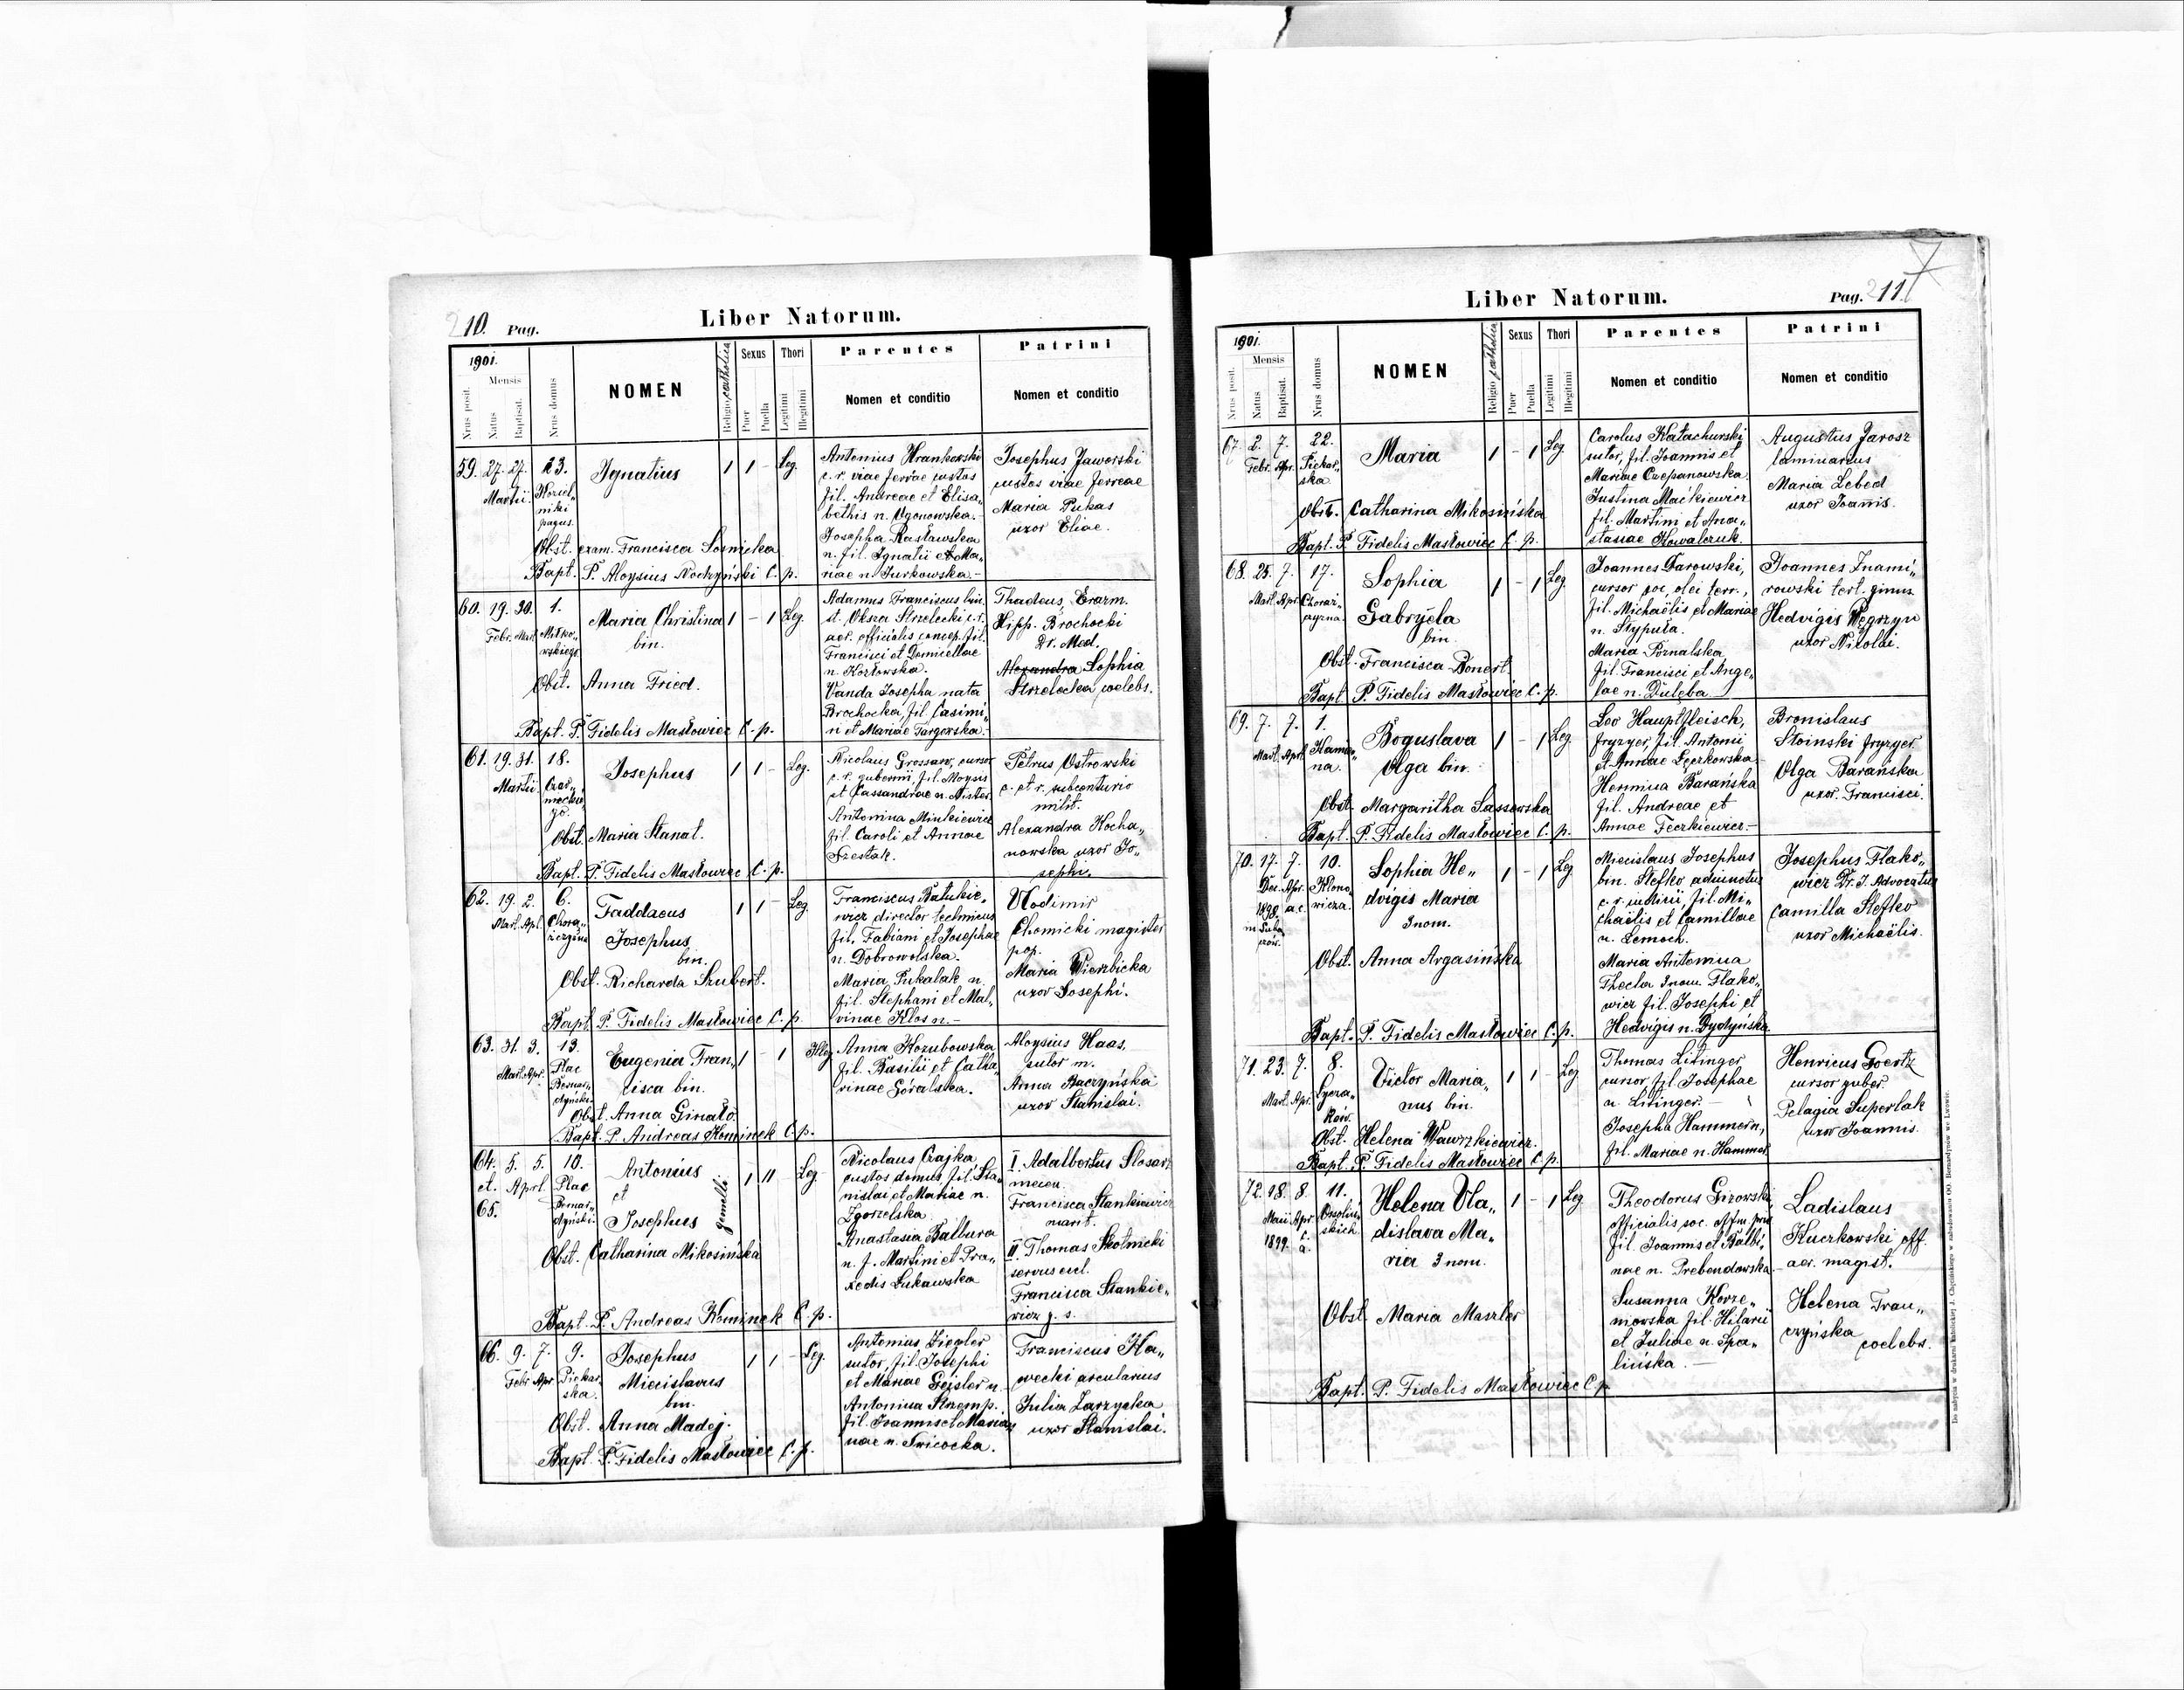 210. Pag.
Liber Natorum.
1901.
Mensis
Nrus posit.
Natus
Baptisat.
Nrus domus
NOMEN
Religio catholica
Sexus
Puer
Puella
Thori
Legitimi
Illegitimi
Parentes
Nomen et conditio
Patrini
Nomen et conditio
59. 27. 27. 23.
Martii
niki
pagus.
Ignatius
1 1 - Leg.
Obst. exam. Francisca Sosnicka
Bapt. P. Aloysius Nodzyński C. p.
Antonius Hrankowski
c. r. viae ferrae custos
fil. Andreae et Elisa„
bethis n. Ogonowska.-
Josepha Rasławska
n. fil. Ignatii et Ma„
riae n. Jurkowska.-
Josephus Jaworski
custos viae ferreae
Maria Pukas
uxor Eliae.
60. 19. 30. 1.
Febr. Mart.
Maria Christina
bin.
1 - 1 Leg.
Obst. Anna Fried.
Bapt. P. Fidelis Masłowiec C. p.
Adamus Franciscus bin.
st. Oksza Strzelecki c. r.
officialis concep. fil.
Francisci et Domicellae
n. Kozłowska.
Vanda Josepha nata
Brochocka fil. Casimi„
ri et Mariae Targowska.-
Thadeus, Erazm.
Hipp. Brochocki
Dr. Med.
Alexandra Sophia
Strzelecka coelebs.
61. 19. 31. 18.
Martii
Czar„
neckie„
go.
Josephus
1 1 - Leg.
Obst. Maria Stanat.
Bapt. P. Fidelis Masłowiec C. p.
Nicolaus Grossan, cursor
c. r. gubernii, fil. Aloysii
et Cassandrae n. Nister.
Antonina Minkiewicz
fil. Caroli et Annae
Szestak.
Petrus Ostrowski
c. et r. subcenturio
milit.
Alexandra Kocha„
nowska uxor Jo„
sephi.
62. 19. 2. 6.
Mart. Apl.
Chorą„
żczyzna
Taddaeus
Josephus
bin.
1 1 - Leg.
Obst. Richarda Szubert.
Bapt. P. Fidelis Masłowiec C. p.
Franciscus Batukie„
wicz director technicus
fil. Fabiani et Josephae
n. Dobrowolska.
Maria Pukalak n.
fil. Stephani et Mal„
vinae Klos n.-
Wlodimir
Chomicki magister
pop.
Maria Wierzbicka
uxor Josephi.
63. 31. 3. 13.
Mart. Apr.
Plac
Bernar„
dyński.
Eugenia Fran„
cisca bin.
1 - 1 Illeg.
Obst. Anna Ginato.
Bapt. P. Andreas Kominek C. p.
Anna Kozubowska
fil. Basilii et Catha„
rinae Góralska.
Aloysius Haas,
sutor m.
Anna Baczyńska
uxor Stanislai.
64. 5. 5. 10.
et. Aprl. Plac
65. Bernar„
dyński.
Antonius
et
Josephus
gemelli
1 11 Leg.
Obst. Catharina Mikosińska
Bapt. P. Andreas Kominek C. p.
Nicolaus Czajka
custos domus fil. Sta„
nislai et Mariae n.
Zgorzelska.
Anastasia Balbura
n. f. Martini et Pra„
xedis Łukawska
I. Adalbertus Slosarz
Francisca Stankiewicz
marit.
II. Thomas Skotnicki
servus eccl.
Francisca Stankie„
wicz j. s.
66. 9. 7. 9.
Febr. Apr.
Piekar„
ska.
Josephus
Miecislavus
bin.
1 1 - Leg.
Obst. Anna Madej.
Bapt. P. Fidelis Masłowiec C. p.
Antonius Ziegler
sutor, fil. Josephi
et Mariae Geisler n.
Antonina Strzemp.
fil. Joannis et Marian„
nae n. Swicocka.
Franciscus Ha„
wecki arcularius
Julia Zarzycka
uxor Stanislai.
Liber Natorum.
Pag. 211.
7
1901.
Mensis
Nrus posit.
Natus
Baptisat.
Nrus domus
NOMEN
Religio catholica
Sexus
Puer
Puella
Thori
Legitimi
Illegitimi
Parentes
Nomen et conditio
Patrini
Nomen et conditio
67. 2. 7. 22.
Febr. Apr.
Piekar„
ska
Maria
1 - 1 Leg
Obst. Catharina Mikosińska
Bapt. P. Fidelis Masłowiec C. p.
Carolus Katachurski
sutor, fil. Joannis et
Mariae Czepanowska.
Justina Maćkiewicz
fil. Martini et Ana„
stasiae Kowalczuk.
Augustus Jarosz
laminarius
Maria Lebed
uxor Joannis.
68. 25. 7. 17.
Mart. Apr.
Chorąż„
czyzna.
Sophia
Gabryela
bin.
1 - 1 Leg
Obst. Francisca Bonert
Bapt. P. Fidelis Masłowiec C. p.
Joannes Darowski,
cursor soc. olei terr.,
fil. Michaëlis et Mariae
n. Stypuła.
Maria Poznalska
fil. Francisci et Ange„
lae n. Dulęba
Joannes Znami„
rowski tert. gimn.
Hedvigis Węgrzyn
uxor Nikolai.
69. 7. 7. 1.
Mart. Aprl.
Kamin„
na.
Boguslava
Olga bin.
1 - 1 Leg.
Obst. Margaritha Sassowska
Bapt. P. Fidelis Masłowiec C. p.
Leo Hauptfleisch,
fryzyer, fil. Antonii
et Annae Łęczkowska
Hermina Barańska
fil. Andreae et
Annae Feczkiewicz.-
Bronislaus
Stoinski fryzyer.
Olga Barańska
uxor. Francisci.
70. 17. 7. 10.
Dec. Apr.
1898. a. c.
Klono„
wicza.
Sophia He„
dvigis Maria
3 nom.
1 - 1 Leg
Obst. Anna Argasińska
Bapt. P. Fidelis Masłowiec C. p.
Miecislaus Josephus
bin. Stefko adiunctus
fil. Mi„
chaëlis et Camillae
n. Lemoch.
Maria Antonina
Thecla 3 nom. Flako„
wicz fil. Josephi et
Hedvigis n. Bydyńska
Josephus Flako„
wicz Dr. J. Advocatus
Camilla Stefko
uxor Michaëlis.
71. 23. 7. 8.
Mart. Apr.
Łycza„
ków.
Victor Maria„
nus bin.
1 1 - Leg
Obst. Helena Wawrzkiewicz.
Bapt. P. Fidelis Masłowiec C. p.
Thomas Litinger
cursor, fil. Josephae
n. Litinger.-
Josepha Hammern,
fil. Mariae n. Hammer.
Henricus Goertz
cursor guber.
Pelagia Superlak
uxor Joannis.
72. 18. 8. 11.
Maii Apr.
1899.
Ossoliń„
skich.
Helena Vla„
dislava Ma„
ria 3 nom.
1 - 1 Leg
Obst. Maria Maszler
Bapt. P. Fidelis Masłowiec C. p.
Theodorus Gizowski,
officialis soc.
fil. Joannis et Balbi„
nae n. Prebendowska.
Susanna Korze„
niowska fil. Hilarii
et Juliae n. Spa„
lińska.-
Ladislaus
Kuczkowski off.
aer. magist.
Helena Fran„
czyńska
coelebs.
Do nabycia w drukarni katolickiej J. Chęcińskiego w zabudowaniu OO. Bernardynów we Lwowie.